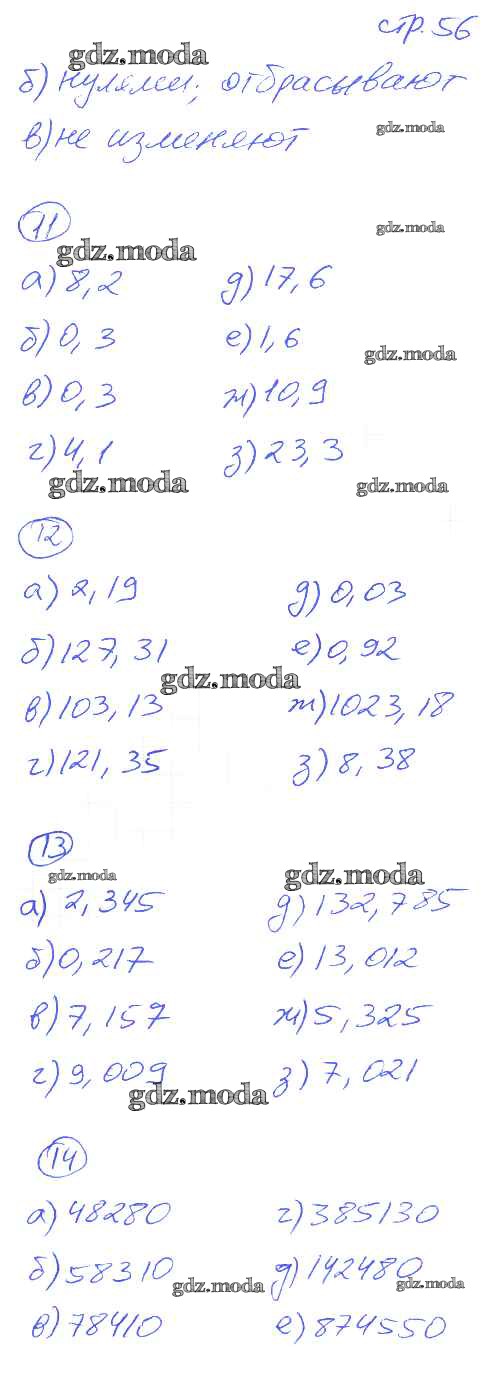 стр. 56
gdz.moda
б) нулями; отбрасывают
в) не изменяют
gdz.moda
11
gdz.moda
gdz.moda
а) 8,2 д) 17,6
б) 0,3 е) 1,6
gdz.moda
в) 0,3 ж) 10,9
г) 4,1 з) 23,3
gdz.moda gdz.moda
12
а) 2,19 д) 0,03
б) 127,31 е) 0,92
gdz.moda
в) 103,13 ж) 1023,18
г) 121,35 з) 8,38
13
gdz.moda gdz.moda
а) 2,345 д) 132,785
б) 0,217 е) 13,012
в) 7,157 ж) 5,325
г) 9,009 з) 7,021
gdz.moda
14
а) 48280 г) 385130
б) 58310 д) 142480
gdz.moda gdz.moda
в) 78410 е) 874550